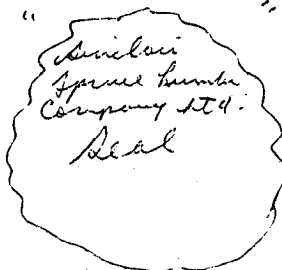 " "
Sinclair
Spruce Lumber
Company Ltd.
Seal